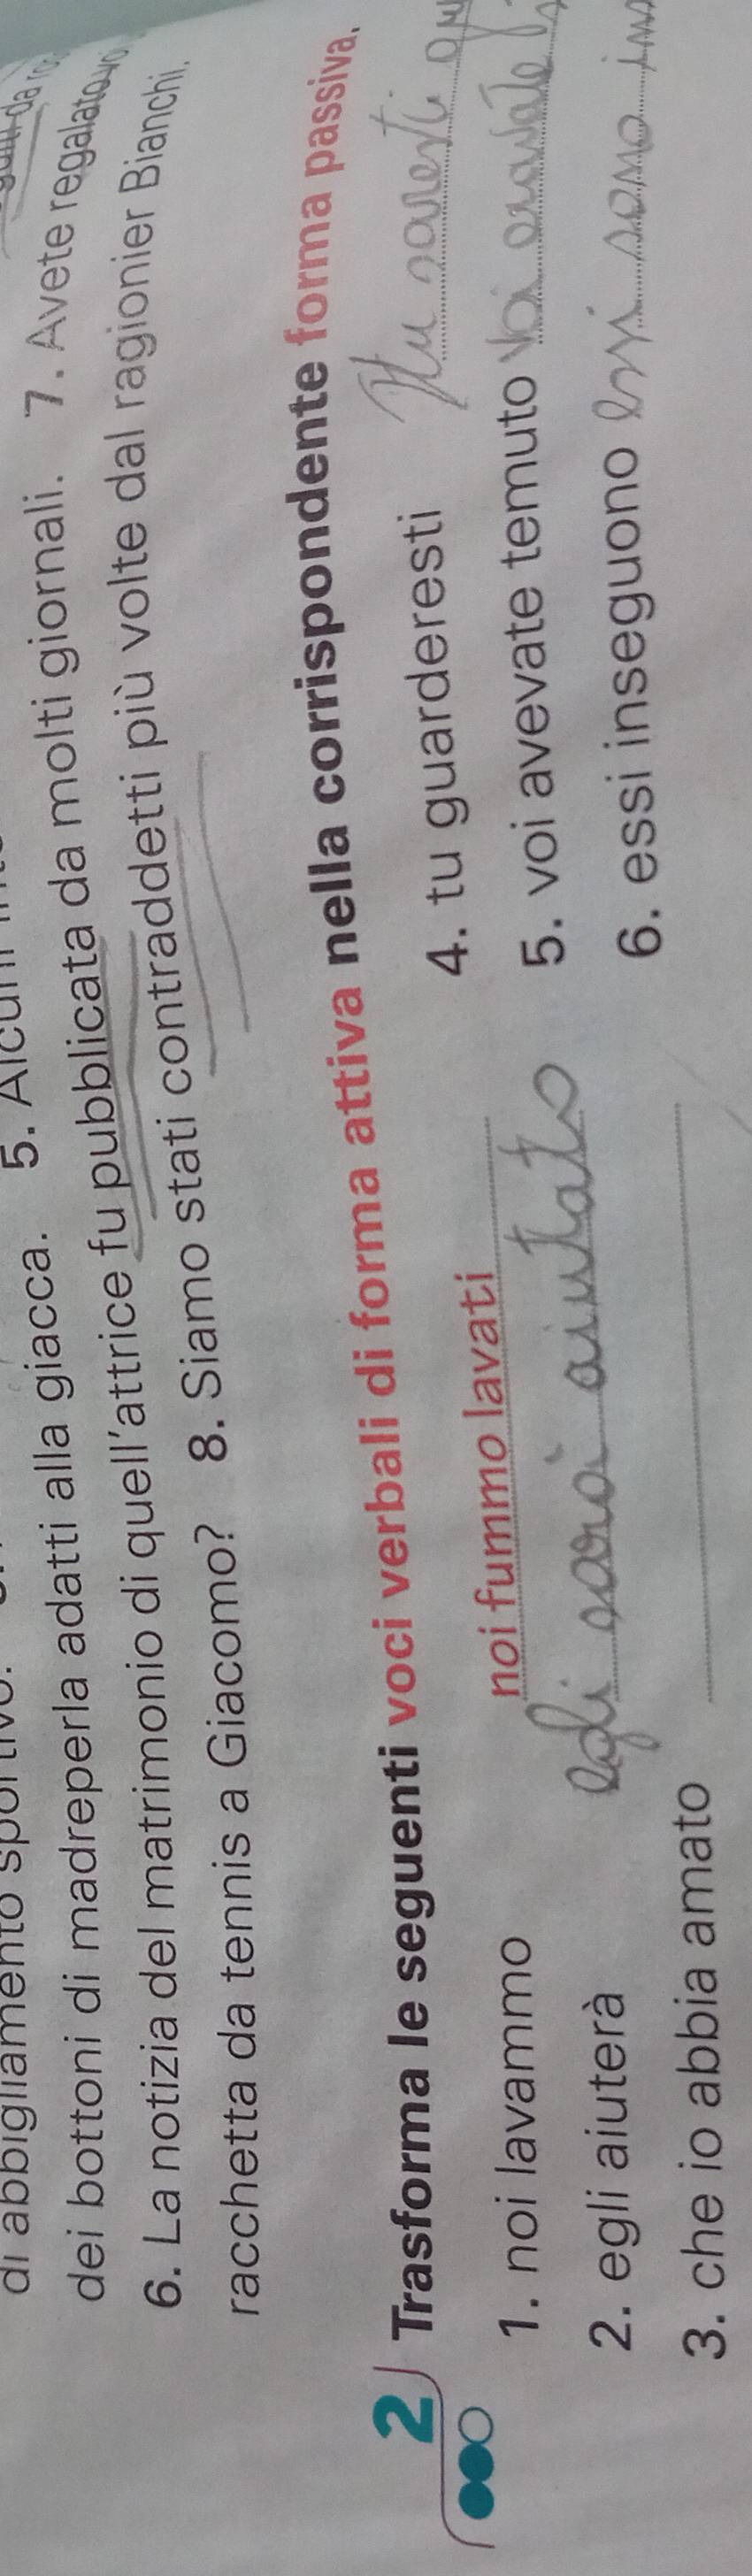 di abbigliamento sportivo. 5. Alcuni
dei bottoni di madreperla adatti alla giacca.
6. La notizia del matrimonio di quell'attrice fu pubblicata da molti giornali. 7. Avete regalato voi
racchetta da tennis a Giacomo? 8. Siamo stati contraddetti più volte dal ragionier Bianchi.
2 Trasforma le seguenti voci verbali di forma attiva nella corrispondente forma passiva.
1. noi lavammo noi fummo lavati
2. egli aiuterà egli sarà aiutato
3. che io abbia amato
4. tu guarderesti tu saresti
5. voi avevate temuto voi eravate
6. essi inseguono essi sono